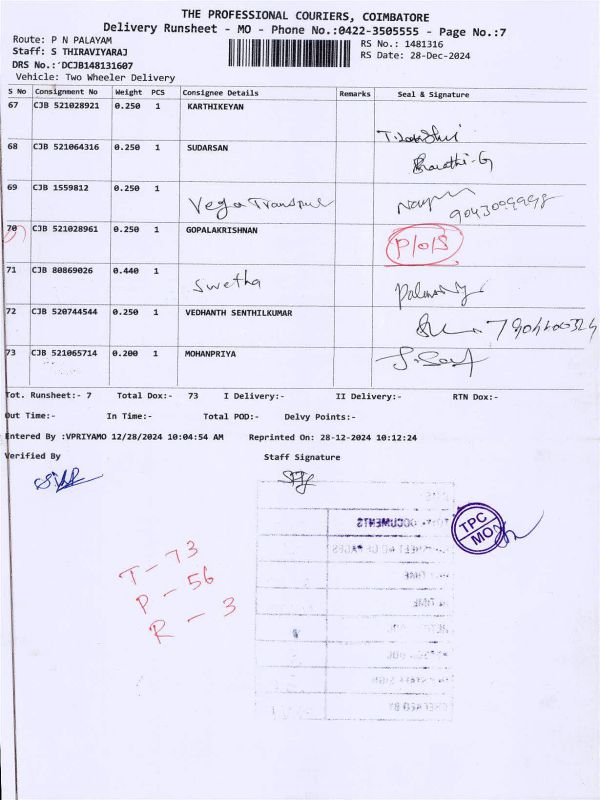 THE PROFESSIONAL COURIERS, COIMBATORE
Delivery Runsheet - MO - Phone No.:0422-3505555 - Page No.:7
Route: P N PALAYAM
RS No.: 1481316
Staff: S THIRAVIYARAJ
RS Date: 28-Dec-2024
DRS No.:DCJB148131607
Vehicle: Two Wheeler Delivery
S No Consignment No Weight PCS Consignee Details Remarks Seal & Signature
67 CJB 521028921 0.250 1 KARTHIKEYAN
68 CJB 521064316 0.250 1 SUDARSAN Bharathi-G
69 CJB 1559812 0.250 1 Vega Transpul
70 CJB 521028961 0.250 1 GOPALAKRISHNAN P/o/S
71 CJB 80869026 0.440 1 Swetha
72 CJB 520744544 0.250 1 VEDHANTH SENTHILKUMAR
73 CJB 521065714 0.200 1 MOHANPRIYA
Tot. Runsheet:- 7 Total Dox:- 73 I Delivery:- II Delivery:- RTN Dox:-
Out Time:- In Time:- Total POD:- Delvy Points:-
Entered By :VPRIYAMO 12/28/2024 10:04:54 AM Reprinted On: 28-12-2024 10:12:24
Verified By Staff Signature
DOCUMENTS
TPC
MO
T - 73
P - 56
R - 3
TIME
TIME
CHECKED BY